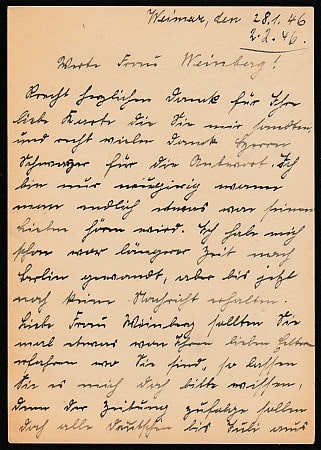 Weimar, den 28.1.46
2.2.46.
Werte Frau Weinberg!
Recht herzlichen Dank für Ihre
liebe Karte die Sie mir sandten,
und recht vielen Dank Herrn
Schwager für die Antwort. Ich
bin nur neugierig wann
man endlich etwas von seinen
Lieben hören wird. Ich habe mich
schon vor längerer Zeit nach
Berlin gewandt, aber bis jetzt
noch keine Nachricht erhalten.
Liebe Frau Weinberg sollten Sie
mal etwas von Ihren lieben Eltern
erfahren wo Sie sind, so lassen
Sie es mich doch bitte wissen,
denn der Zeitung zufolge sollen
doch alle Deutschen bis Juli aus